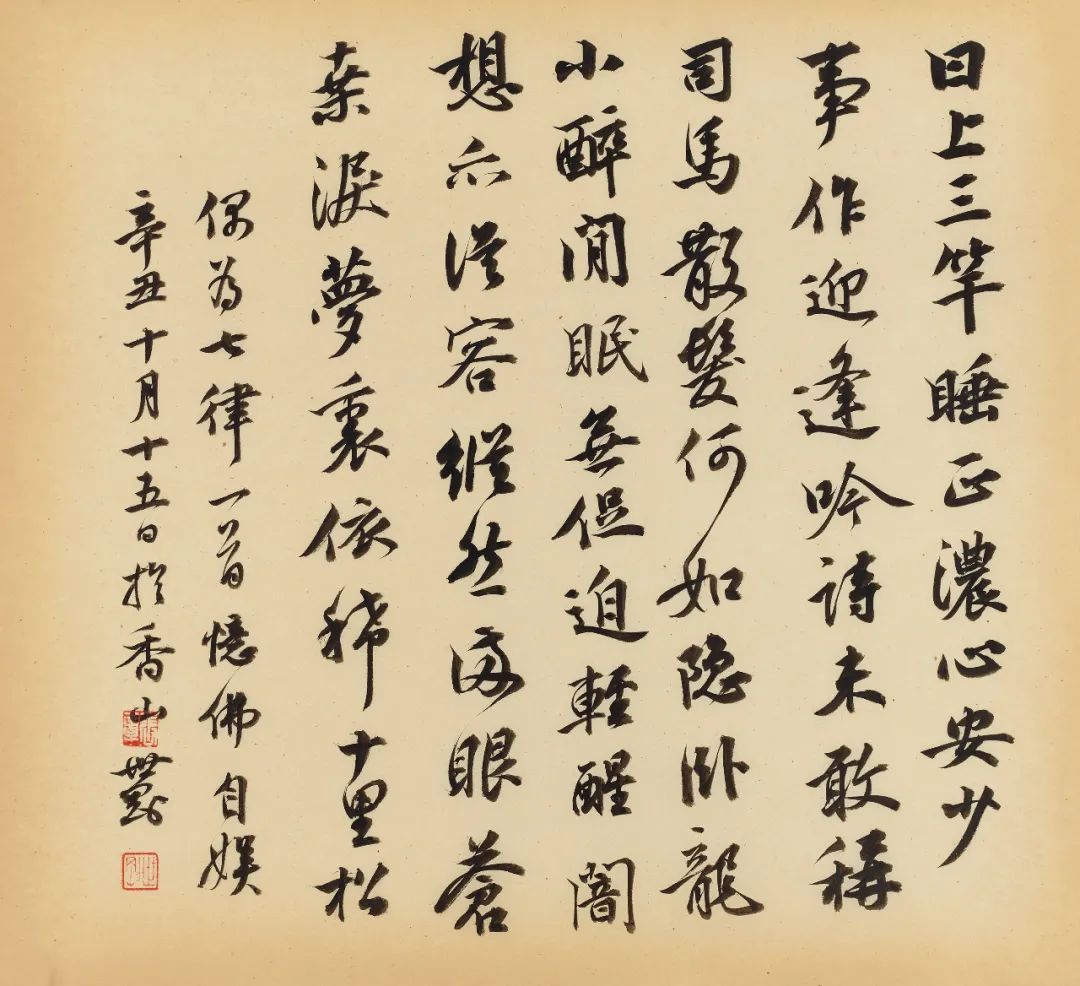 日上三竿睡正濃心安少
事作迎逢吟詩未敢稱
司馬散髮何如隐卧龍
小醉閒眠無促迫輕醒闇
想亦從容縱然滿眼蒼
桑淚夢裏依稀十里松
偶为七律一首憶佛自娱
辛丑十月十五日於香山世